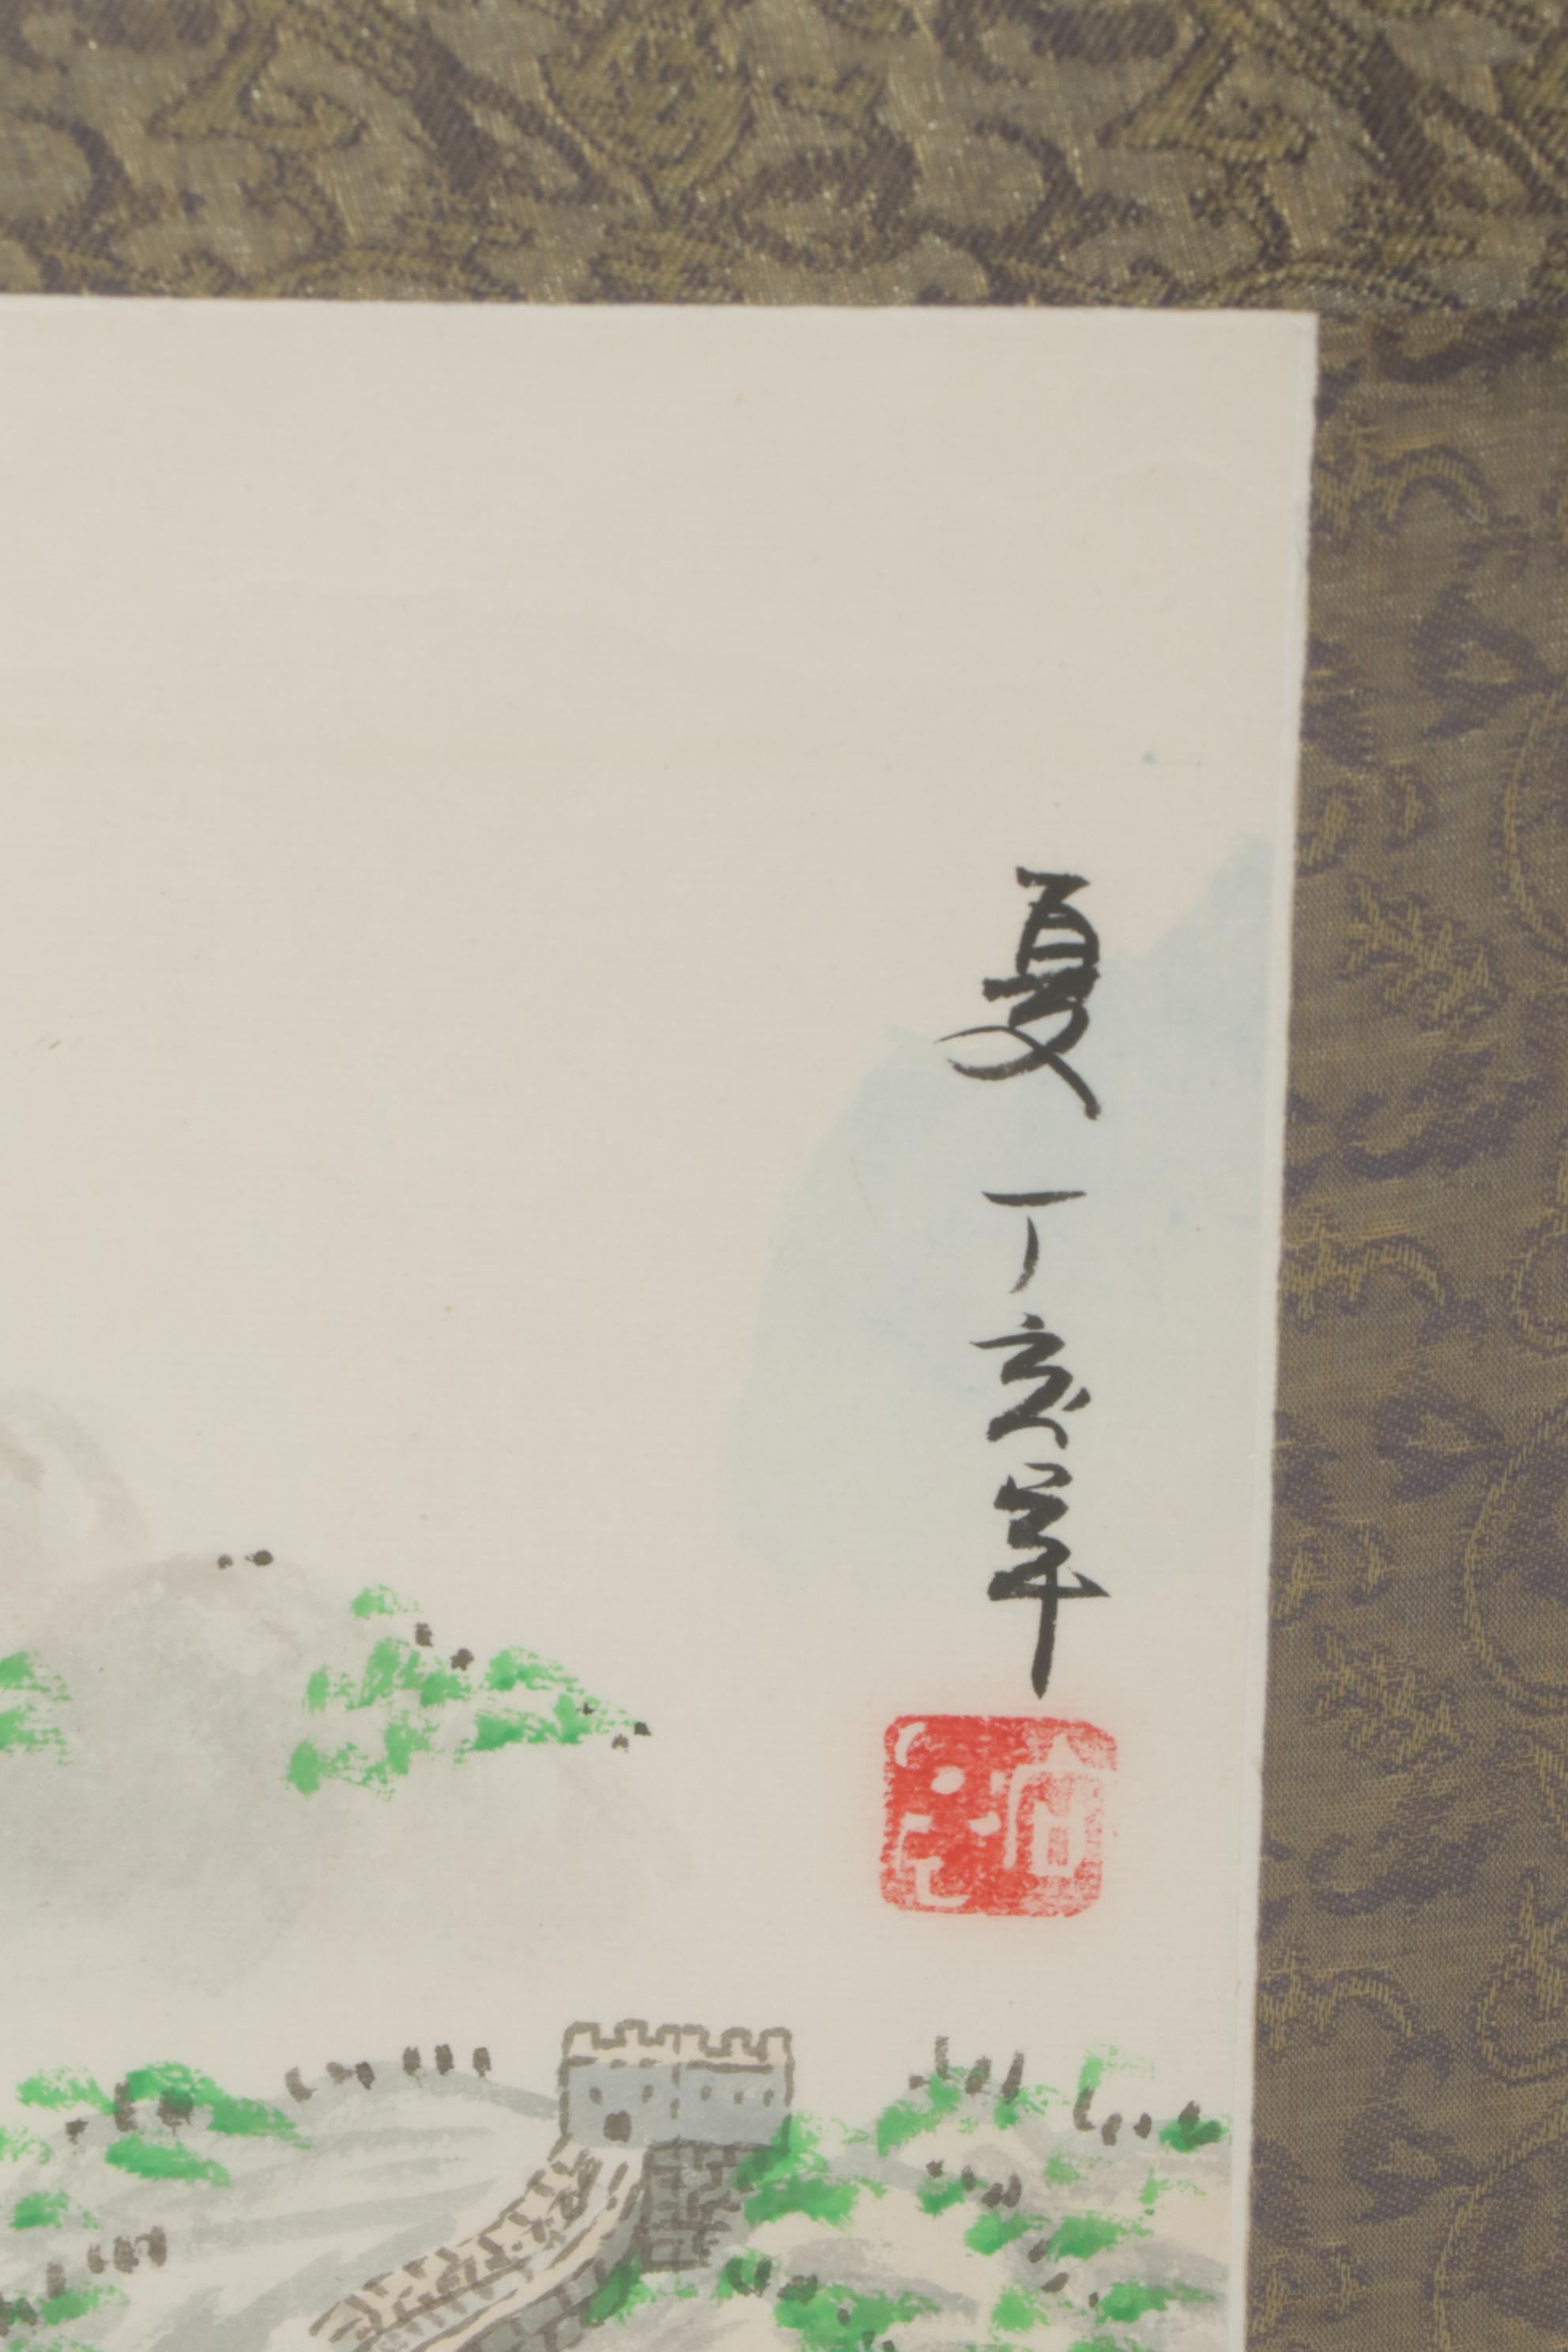 夏 丁亥年